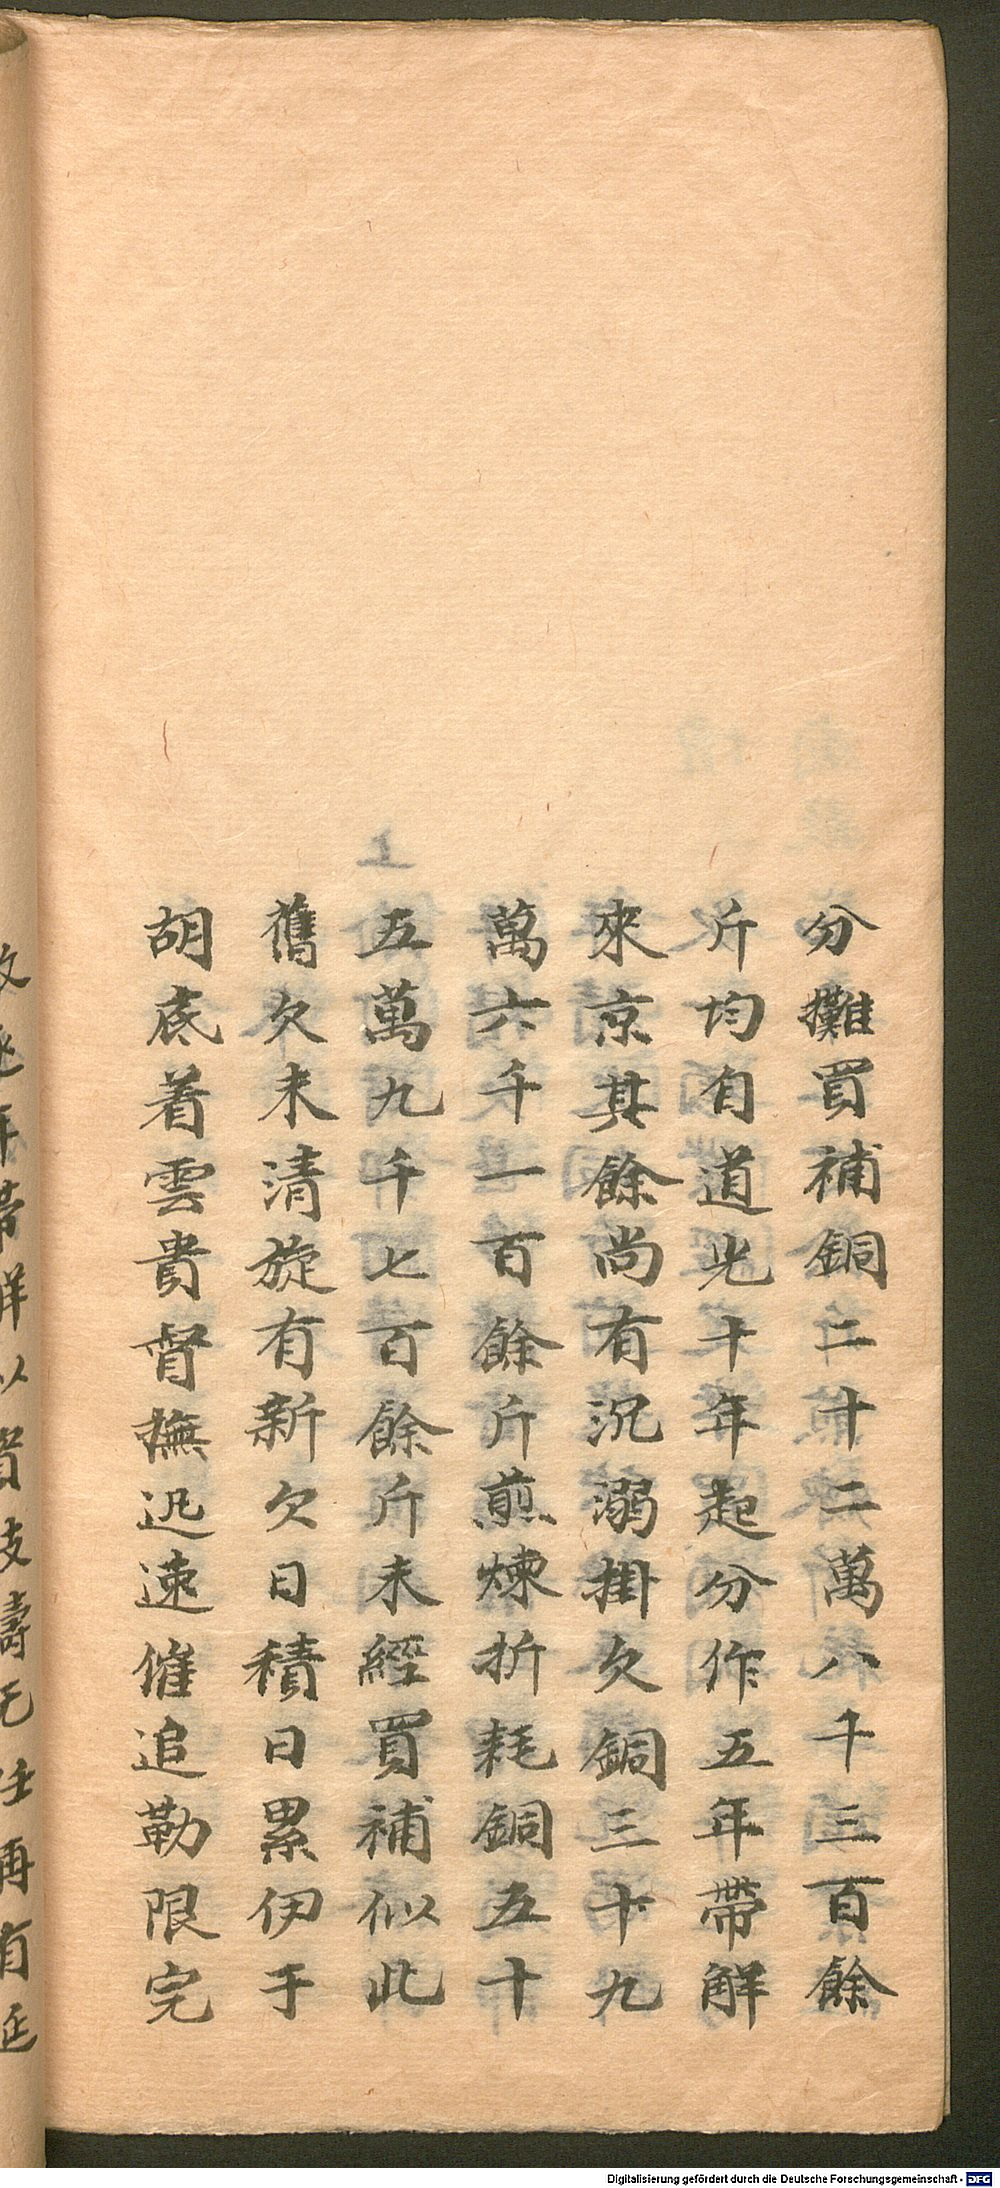 分攤買補銅二十二萬八千三百餘
斤均自道光十年起分作五年帶解
來京其餘尚有沉溺掛欠銅三十九
萬六千一百餘斤煎煉折耗銅五十
五萬九千七百餘斤未經買補似此
舊欠未清旋有新欠日積日累伊于
胡底着雲貴督撫迅速催追勒限完
Digitalisierung gefördert durch die Deutsche Forschungsgemeinschaft - DFG